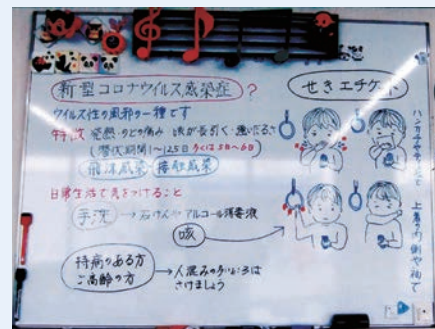 新型コロナウイルス感染症?
ウイルス性の風邪の一種です
特徴 発熱・のどの痛み 咳が長引く・強いだるさ
(潜伏期間1〜12.5日 多くは5日〜6日)
飛沫感染 接触感染
日常生活で気をつけること
手洗 → 石けんやアルコール消毒液
咳
持病のある方
ご高齢の方
→人混みの多いところは
さけましょう
せきエチケット
ハンカチやティッシュで
上着の内側や袖で